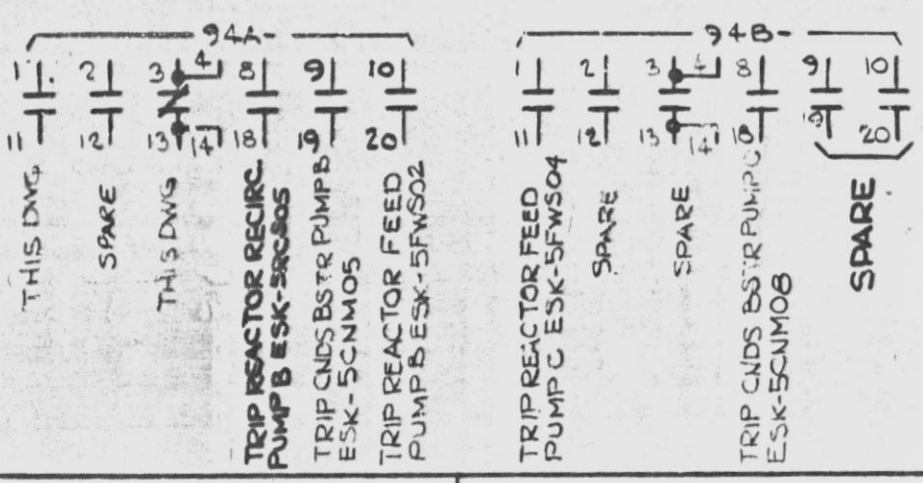 94A
1 2 3 4 8 9 10
11 12 13 14 18 19 20
THIS DWG
SPARE
THIS DWG
TRIP REACTOR RECIRC.
PUMP B ESK-5RCS05
TRIP CNDS BSTR PUMP B
ESK-5CNM05
TRIP REACTOR FEED
PUMP B ESK-5FWS02
94B
1 2 3 4 8 9 10
11 12 13 14 18 19 20
TRIP REACTOR FEED
PUMP C ESK-5FWS04
SPARE
SPARE
TRIP CNDS BSTR PUMP C
ESK-5CNM08
SPARE